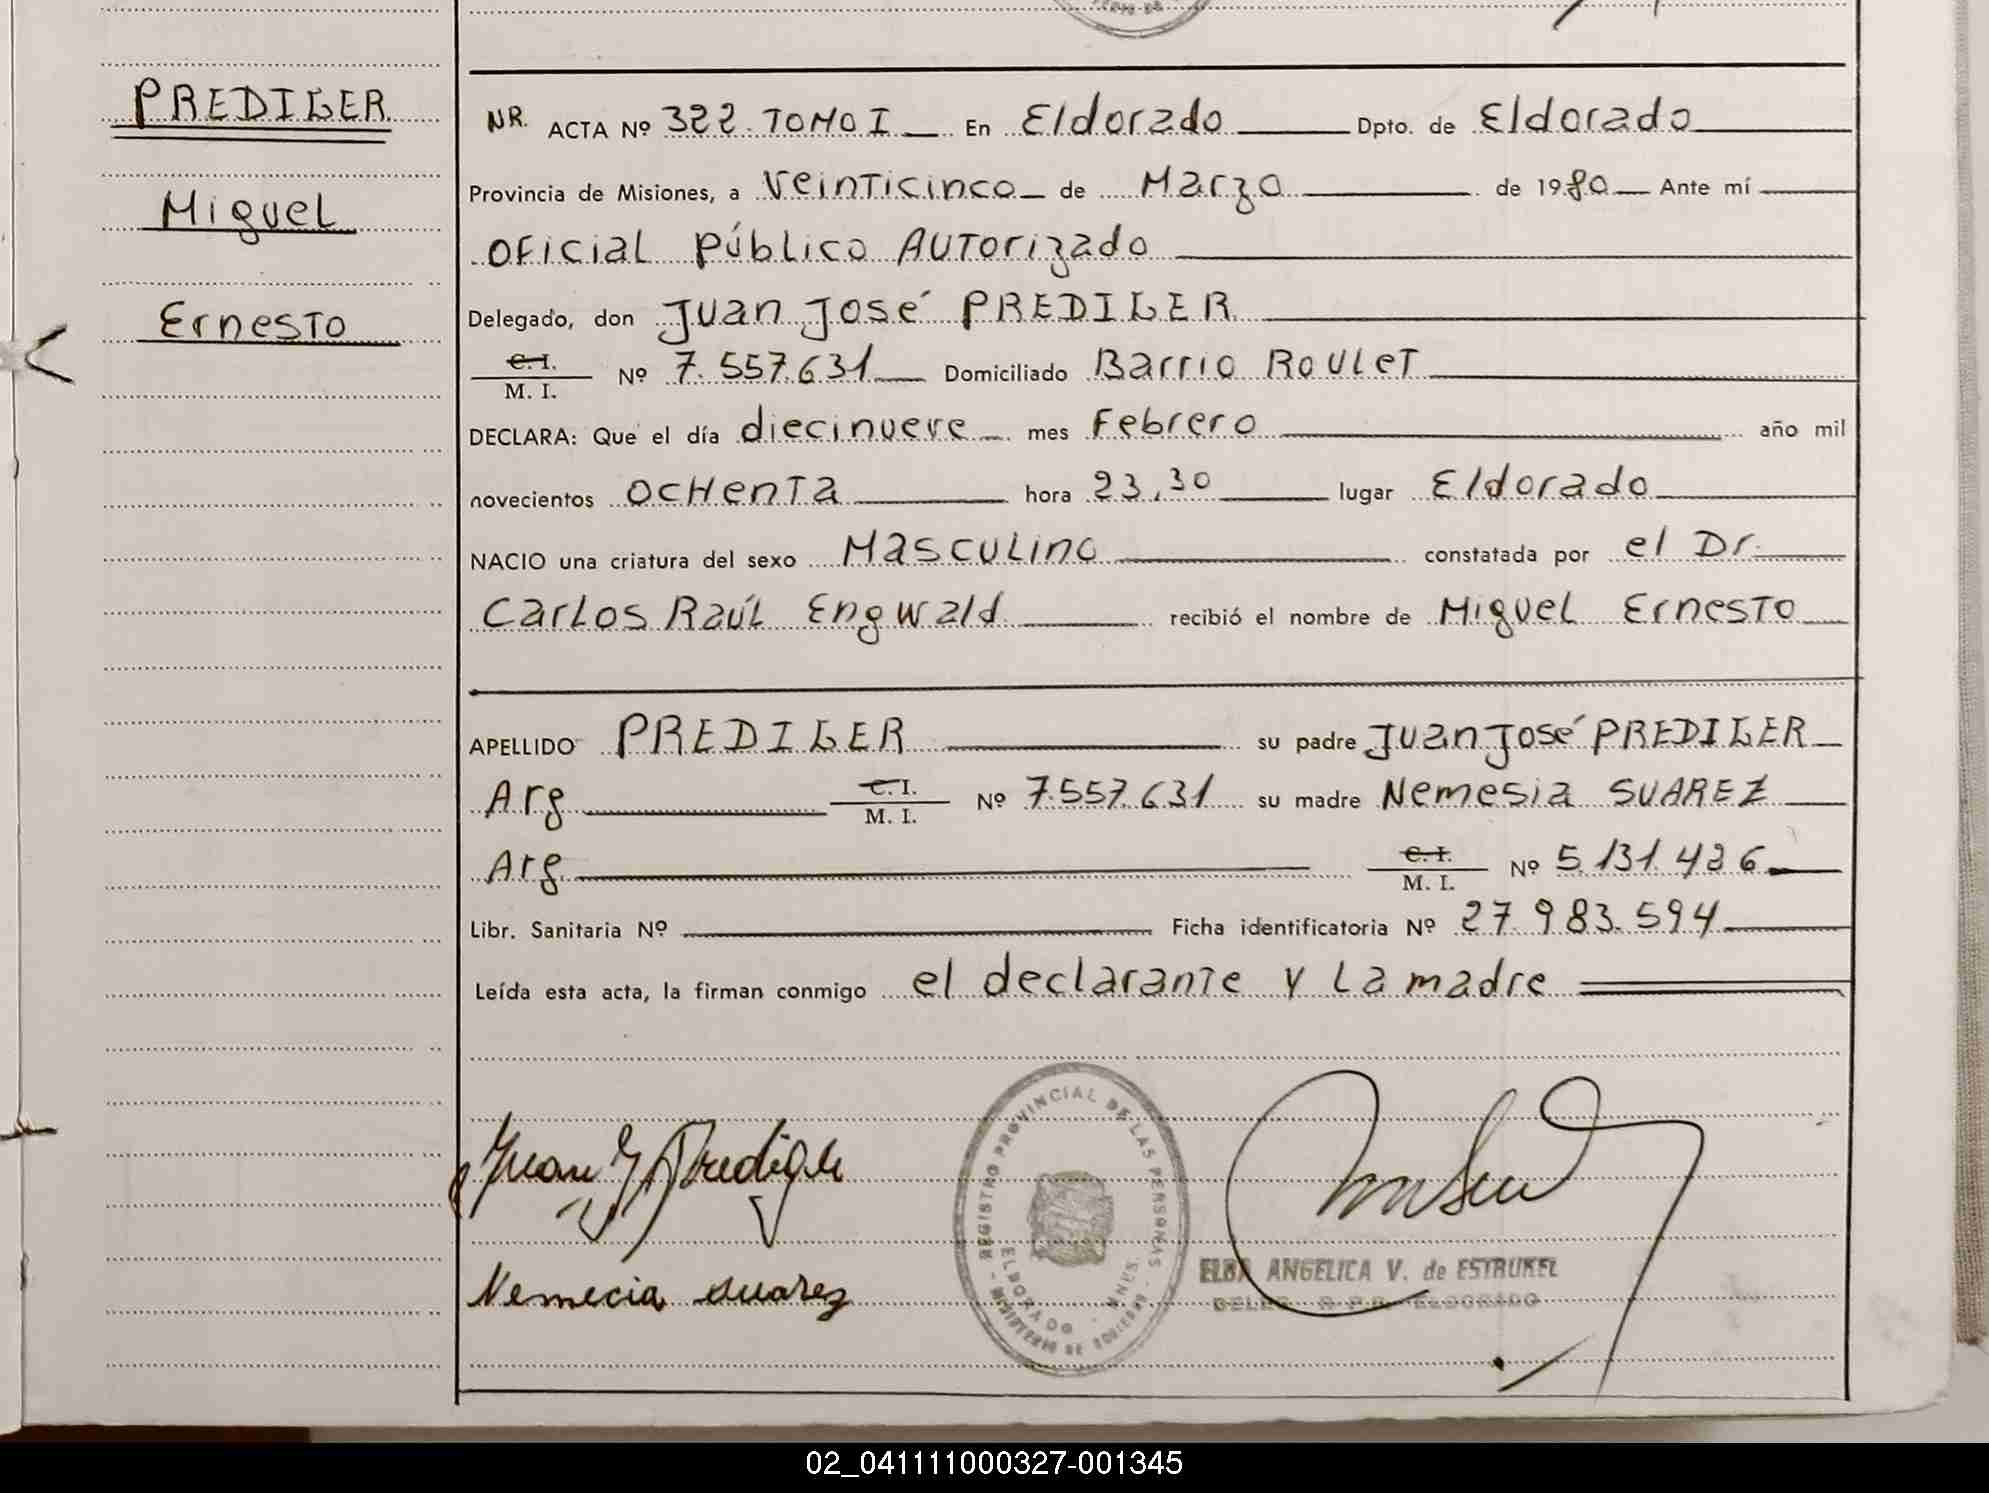 PREDIGER
Miguel
Ernesto
NR. ACTA Nº 322 TOMO I En Eldorado Dpto. de Eldorado
Provincia de Misiones, a veinticinco de Marzo de 1980 Ante mí
oficial público Autorizado
Delegado, don Juan José PREDIGER
C.I. / M. I. Nº 7.557.631 Domiciliado Barrio Roulet
DECLARA: Que el día diecinueve mes Febrero año mil
novecientos ochenta hora 23,30 lugar Eldorado
NACIO una criatura del sexo Masculino constatada por el Dr.
Carlos Raúl Engwald recibió el nombre de Miguel Ernesto
APELLIDO PREDIGER su padre Juan José PREDIGER
Arg C.I. / M. I. Nº 7.557.631 su madre Nemesia SUAREZ
Arg. C.I. / M. I. Nº 5.131.426
Libr. Sanitaria Nº Ficha identificatoria Nº 27.983.594
Leída esta acta, la firman conmigo el declarante y la madre
Juan J Prediger
REGISTRO PROVINCIAL DE LAS PERSONAS
ELDORADO - MNES.
MINISTERIO DE GOBIERNO
Nemecia suarez
ELBA ANGELICA V. de ESTRUKEL
ELDORADO
02_041111000327-001345